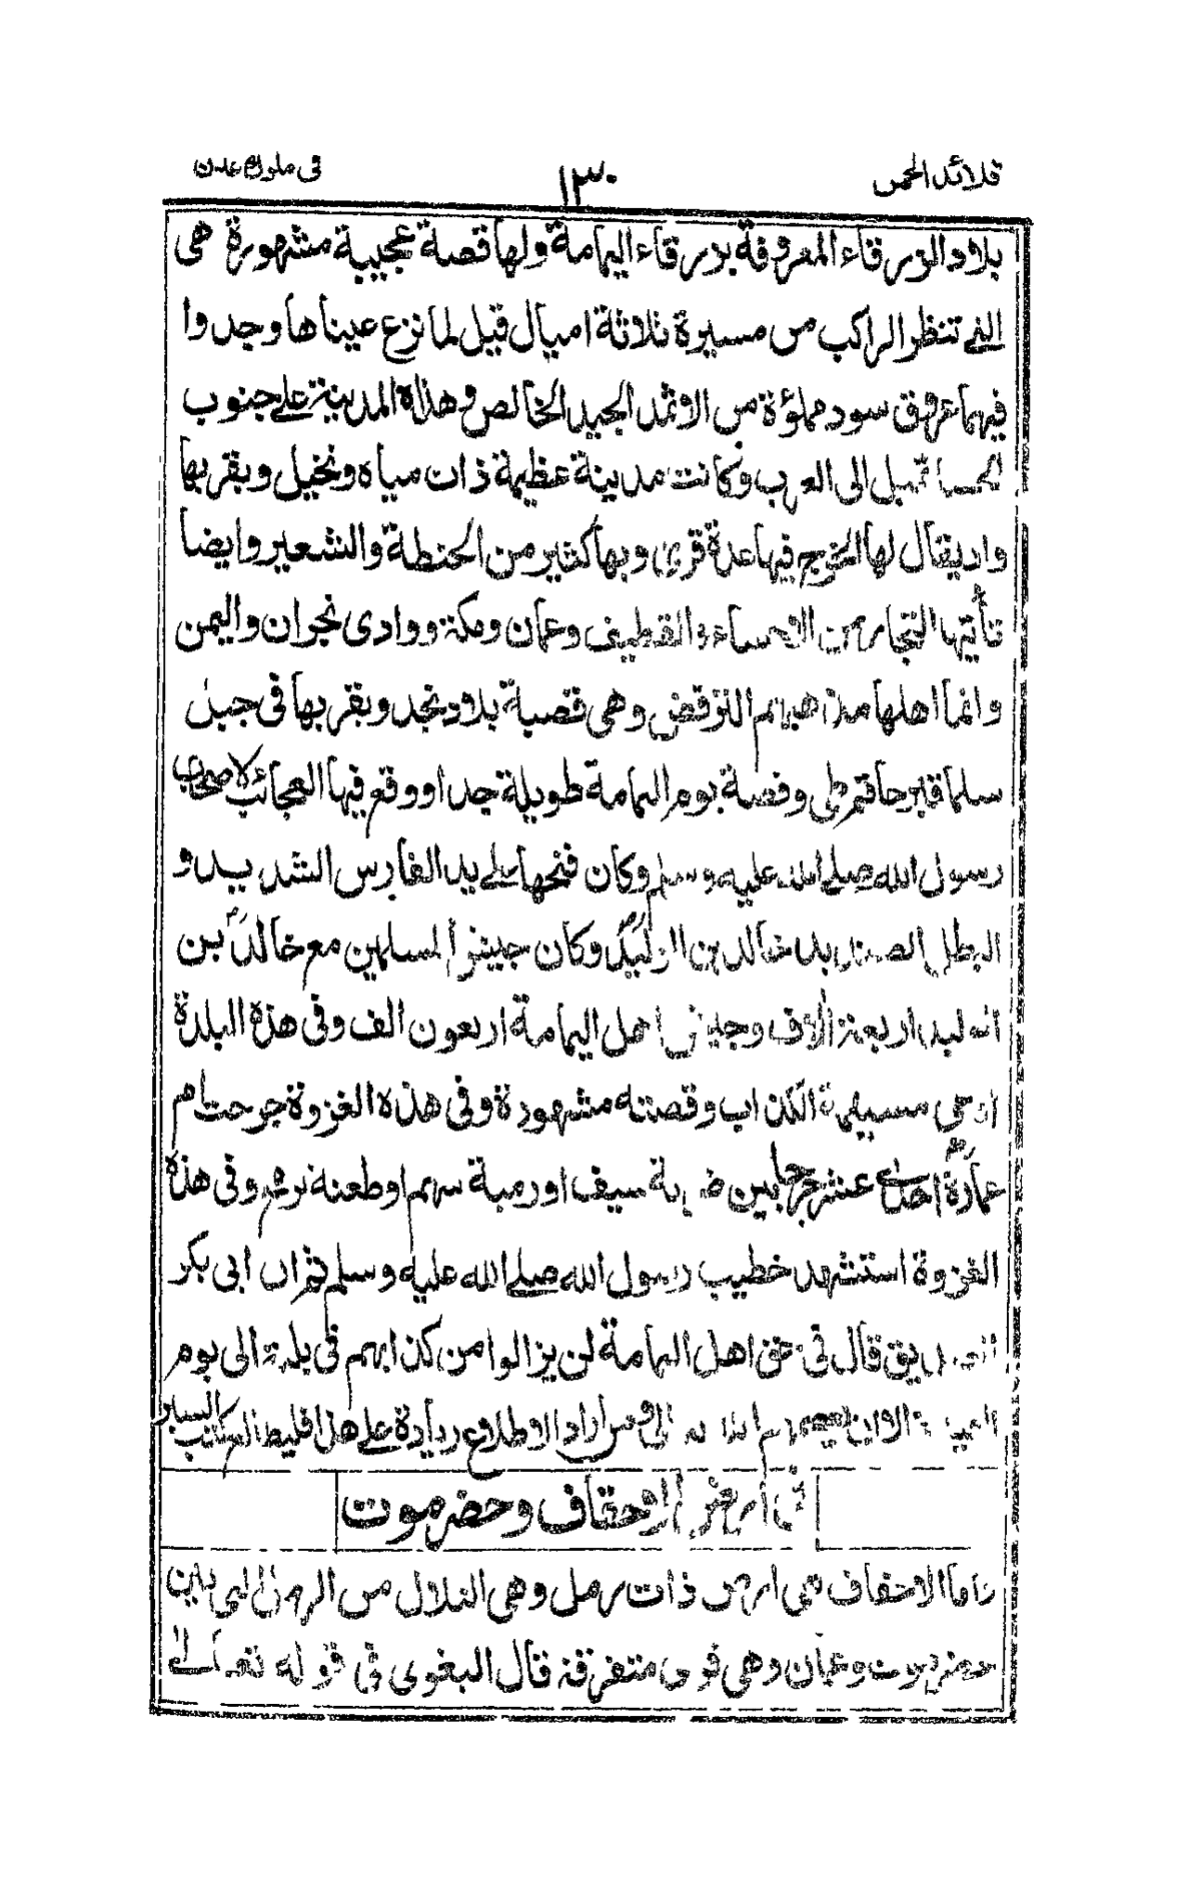 قلائد الجمن ١٣٠ فى ملوك عدن
بلاد الزرقاء المعروفة بزرقاء اليمامة ولها قصة عجيبة مشهورة هى
التى تنظر الراكب من مسيرة ثلاثة اميال قيل لما نزع عيناها وجدوا
فيهما عروق سود مملؤة من الاثمد الجيد الخالص وهذاه المدينة على جنوب
الحسا تميل الى العرب وكانت مدينة عظيمة ذات مياه ونخيل وبقربها
واد يقال لها الخرج فيها عدة قرى وبها كثير من الحنطة والشعير وايضا
تأتيها التجار من الاحساء والقطيف وعمان ومكة ووادى نجران واليمن
وانما اهلها مذاهبهم الترفض وهى قصبة بلاد نجد وبقربها فى جبل
سلما قبر حاتم طى وقصة يوم اليمامة طويلة جدا ووقع فيها العجائب لاصحاب
رسول الله صلى الله عليه وسلم وكان فتحها على يد الفارس الشديد و
البطل الصنديد خالد بن الوليد وكان جيش المسلمين مع خالد بن
الوليد اربعة الاف وجيش اهل اليمامة اربعون الف وفى هذه البلدة
ادعى مسيلمة الكذاب وقصته مشهورة وفى هذه الغزوة جرحت ام
عمارة احدى عشر جرحا بين ضربة سيف او رمية سهم او طعنة برمح وفى هذه
الغزوة استشهد خطيب رسول الله صلى الله عليه وسلم ثم ان ابى بكر
الصديق قال فى حق اهل اليمامة لن يزالوا من كذابهم فى بلية الى يوم
القيمة الا ان يعصمهم الله ومن اراد الاطلاع زيادة على هذا فليطالع كتب السير
فى ارض الاحقاف وحضرموت
واما الاحقاف فهى ارض ذات رمل وهى التلال من الرمال التى بين
حضرموت وعمان وهى قرى متفرقة قال البغوى فى قوله تعالى